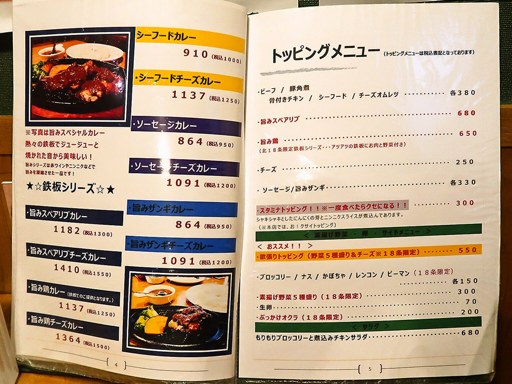 シーフードカレー
910 (税込1000)
・シーフードチーズカレー
1137 (税込1250)
・ソーセージカレー
864 (税込950)
・ソーセージチーズカレー
1091 (税込1200)
・旨みザンギカレー
864 (税込950)
・旨みザンギチーズカレー
1091 (税込1200)
※写真は旨みスペシャルカレー
熱々の鉄板でジュージューと
焼かれた音から美味しい!
★☆鉄板シリーズ☆★
・旨みスペアリブカレー
1182 (税込1300)
・旨みスペアリブチーズカレー
1410 (税込1550)
・旨み鶏カレー
1137 (税込1250)
・旨み鶏チーズカレー
1364 (税込1500)
4
トッピングメニュー (トッピングメニューは税込表記となっております)
・ビーフ / 豚角煮
骨付きチキン / シーフード / チーズオムレツ 各380
・旨みスペアリブ 680
・旨み鶏 650
・チーズ 250
・ソーセージ/旨みザンギ 各330
・スタミナトッピング!!※一度食べたらクセになる!! 300
シャキシャキとしたにんにくの芽とニンニクスライスが煮込んであります。
< おススメ!! >
・欲張りトッピング (野菜5種盛り&チーズ※18条限定) 550
・ブロッコリー / ナス / かぼちゃ / レンコン / ピーマン (18条限定)
各150
・素揚げ野菜5種盛り (18条限定) 300
・生卵 70
・ぶっかけオクラ (18条限定) 200
< サラダ >
もりもりブロッコリーと煮込みチキンサラダ 680
5